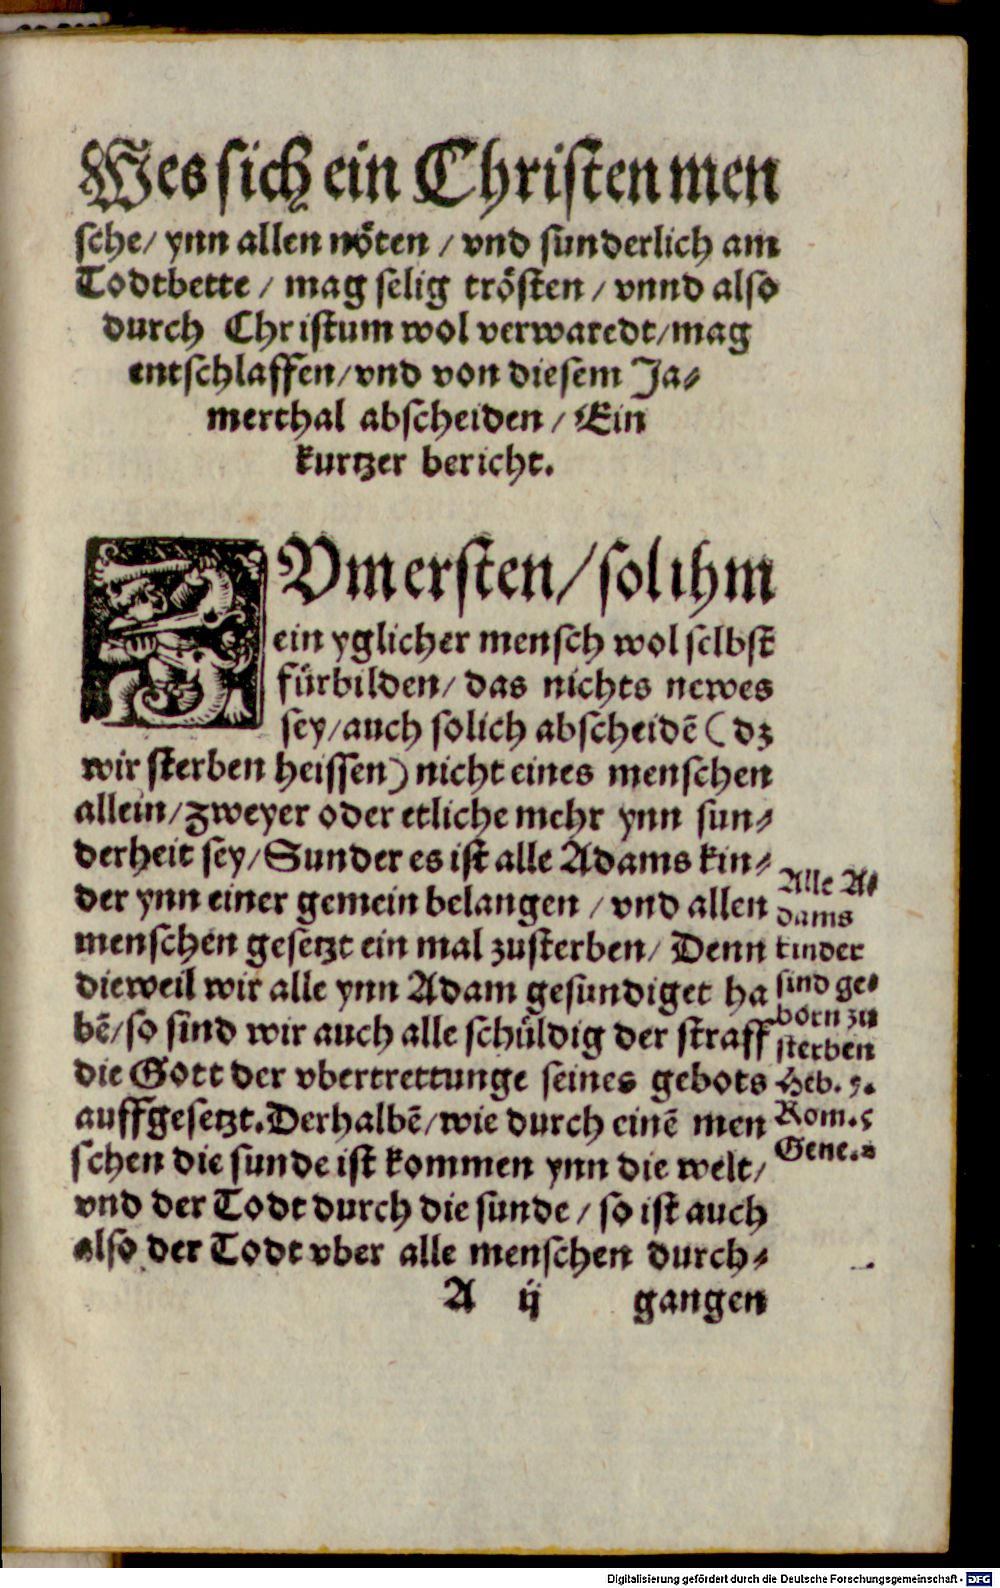 Wes sich ein Christen men
sche/ ynn allen nöten / vnd sunderlich am
Todtbette / mag selig trösten / vnnd also
durch Christum wol verwaredt/mag
entschlaffen/vnd von diesem Ja⸗
merthal abscheiden / Ein
kurtzer bericht.
ZVmersten/sol ihm
ein yglicher mensch wol selbst
fürbilden/ das nichts newes
sey/auch solich abscheidē (dz
wir sterben heissen) nicht eines menschen
allein/zweyer oder etliche mehr ynn sun⸗
derheit sey/Sunder es ist alle Adams kin⸗
der ynn einer gemein belangen / vnd allen
menschen gesetzt ein mal zusterben/ Denn
dieweil wir alle ynn Adam gesundiget ha
bē/so sind wir auch alle schüldig der straff
die Gott der vbertrettunge seines gebots
auffgesetzt.Derhalbē/wie durch einē men
schen die sunde ist kommen ynn die welt/
vnd der Todt durch die sunde / so ist auch
also der Todt vber alle menschen durch⸗
Alle A⸗
dams
kinder
sind ge⸗
born zu
sterben
Heb. 9.
Rom.5
Gene.2
A ij gangen
Digitalisierung gefördert durch die Deutsche Forschungsgemeinschaft - DFG